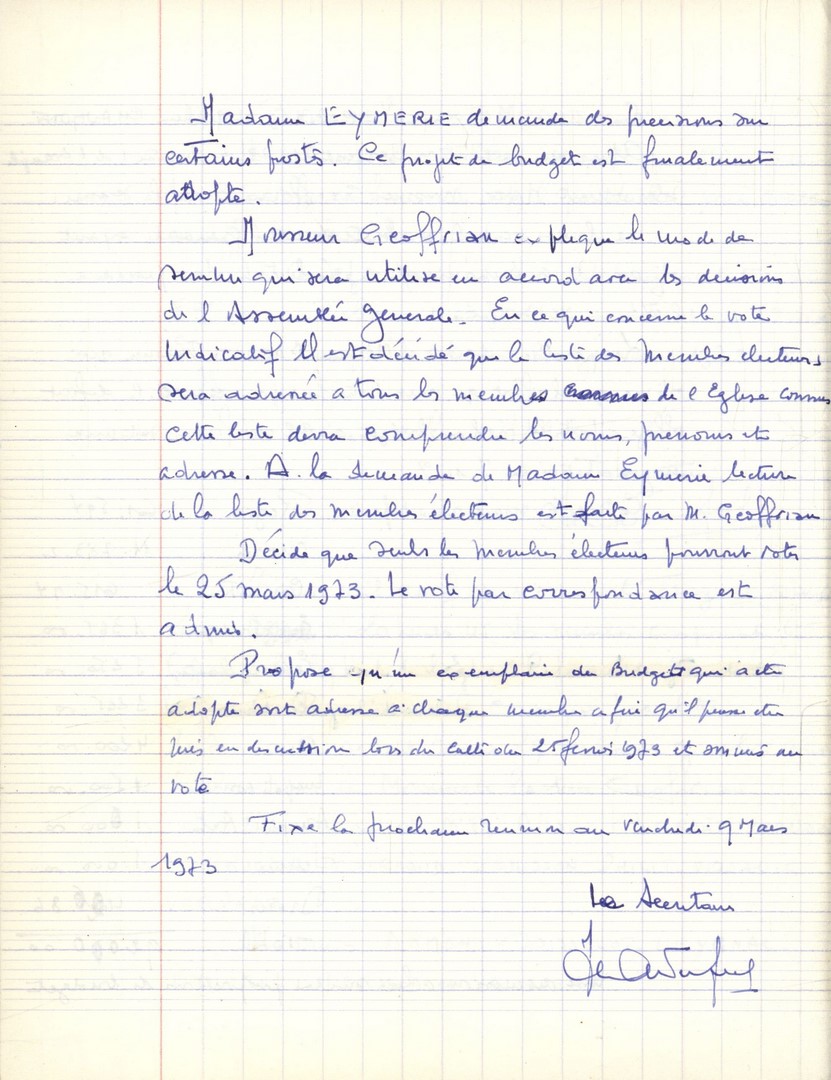 Madame EYMERIE demande des precisions sur
certains postes. Ce projet de budget est finalement
adopte.
Monsieur Geoffrian explique le mode de
scrutin qui sera utilise en accord avec les decisions
de l Assemblée generale. En ce qui concerne le vote
Indicatif Il est décidé que la liste des Membres electeurs
sera adressée a tous les membres de l Eglise connus
cette liste devra comprendre les noms, prenoms et
adresse. A la demande de Madame Eymerie lecture
de la liste des membres électeurs est faite par M. Geoffrian
Décide que seuls les membres électeurs pourront voter
le 25 mars 1973. Le vote par correspondance est
admis.
Propose qu'un exemplaire du Budget qui a ete
adopte soit adresse a chaque membre afin qu'il puisse etre
mis en discussion lors du culte du 25 fevrier 1973 et soumis au
vote
Fixe la prochaine reunion au vendredi 9 Mars
1973
Le Secretaire